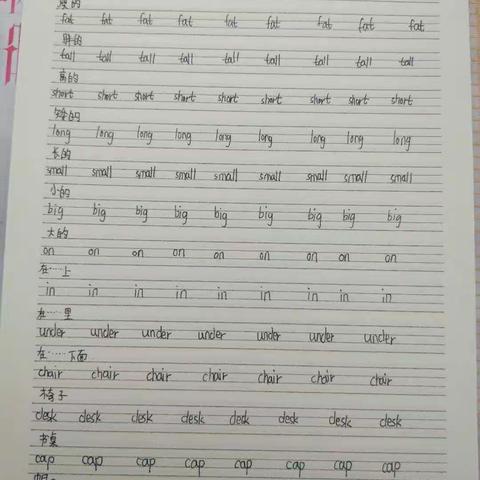 瘦的
fat fat fat fat fat fat fat fat fat
胖的
tall tall tall tall tall tall tall tall tall
高的
short short short short short short short short short
矮的
long long long long long long long long long
长的
small small small small small small small small small
小的
big big big big big big big big big
大的
on on on on on on on on on
在……上
in in in in in in in in in
在……里
under under under under under under under
在……下面
chair chair chair chair chair chair chair
椅子
desk desk desk desk desk desk desk desk
书桌
cap cap cap cap cap cap cap cap